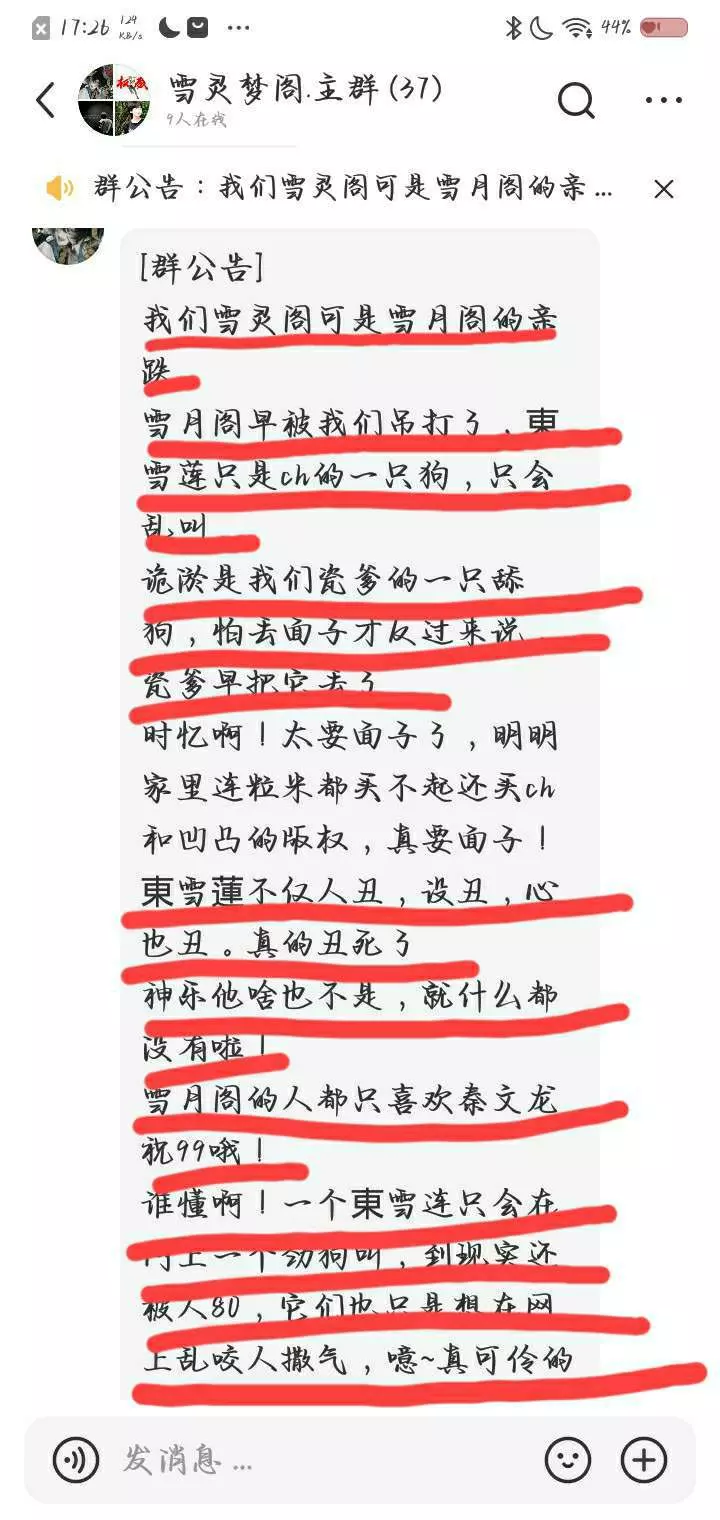 17:26 124 KB/s ... 44%
雪灵梦阁.主群(37)
9人在线
群公告：我们雪灵阁可是雪月阁的亲...
[群公告]
我们雪灵阁可是雪月阁的亲
跌
雪月阁早被我们吊打了，東
雪莲只是ch的一只狗，只会
乱叫
诡淤是我们瓷爹的一只舔
狗，怕丢面子才反过来说
瓷爹早把它丢了
时忆啊！太要面子了，明明
家里连粒米都买不起还买ch
和凹凸的版权，真要面子！
東雪蓮不仅人丑，设丑，心
也丑。真的丑死了
神乐他啥也不是，就什么都
没有啦！
雪月阁的人都只喜欢秦文龙
祝99哦！
谁懂啊！一个東雪连只会在
网上一个劲狗叫，到现实还
被人80，它们也只是想在网
上乱咬人撒气，噫~真可伶的
发消息...